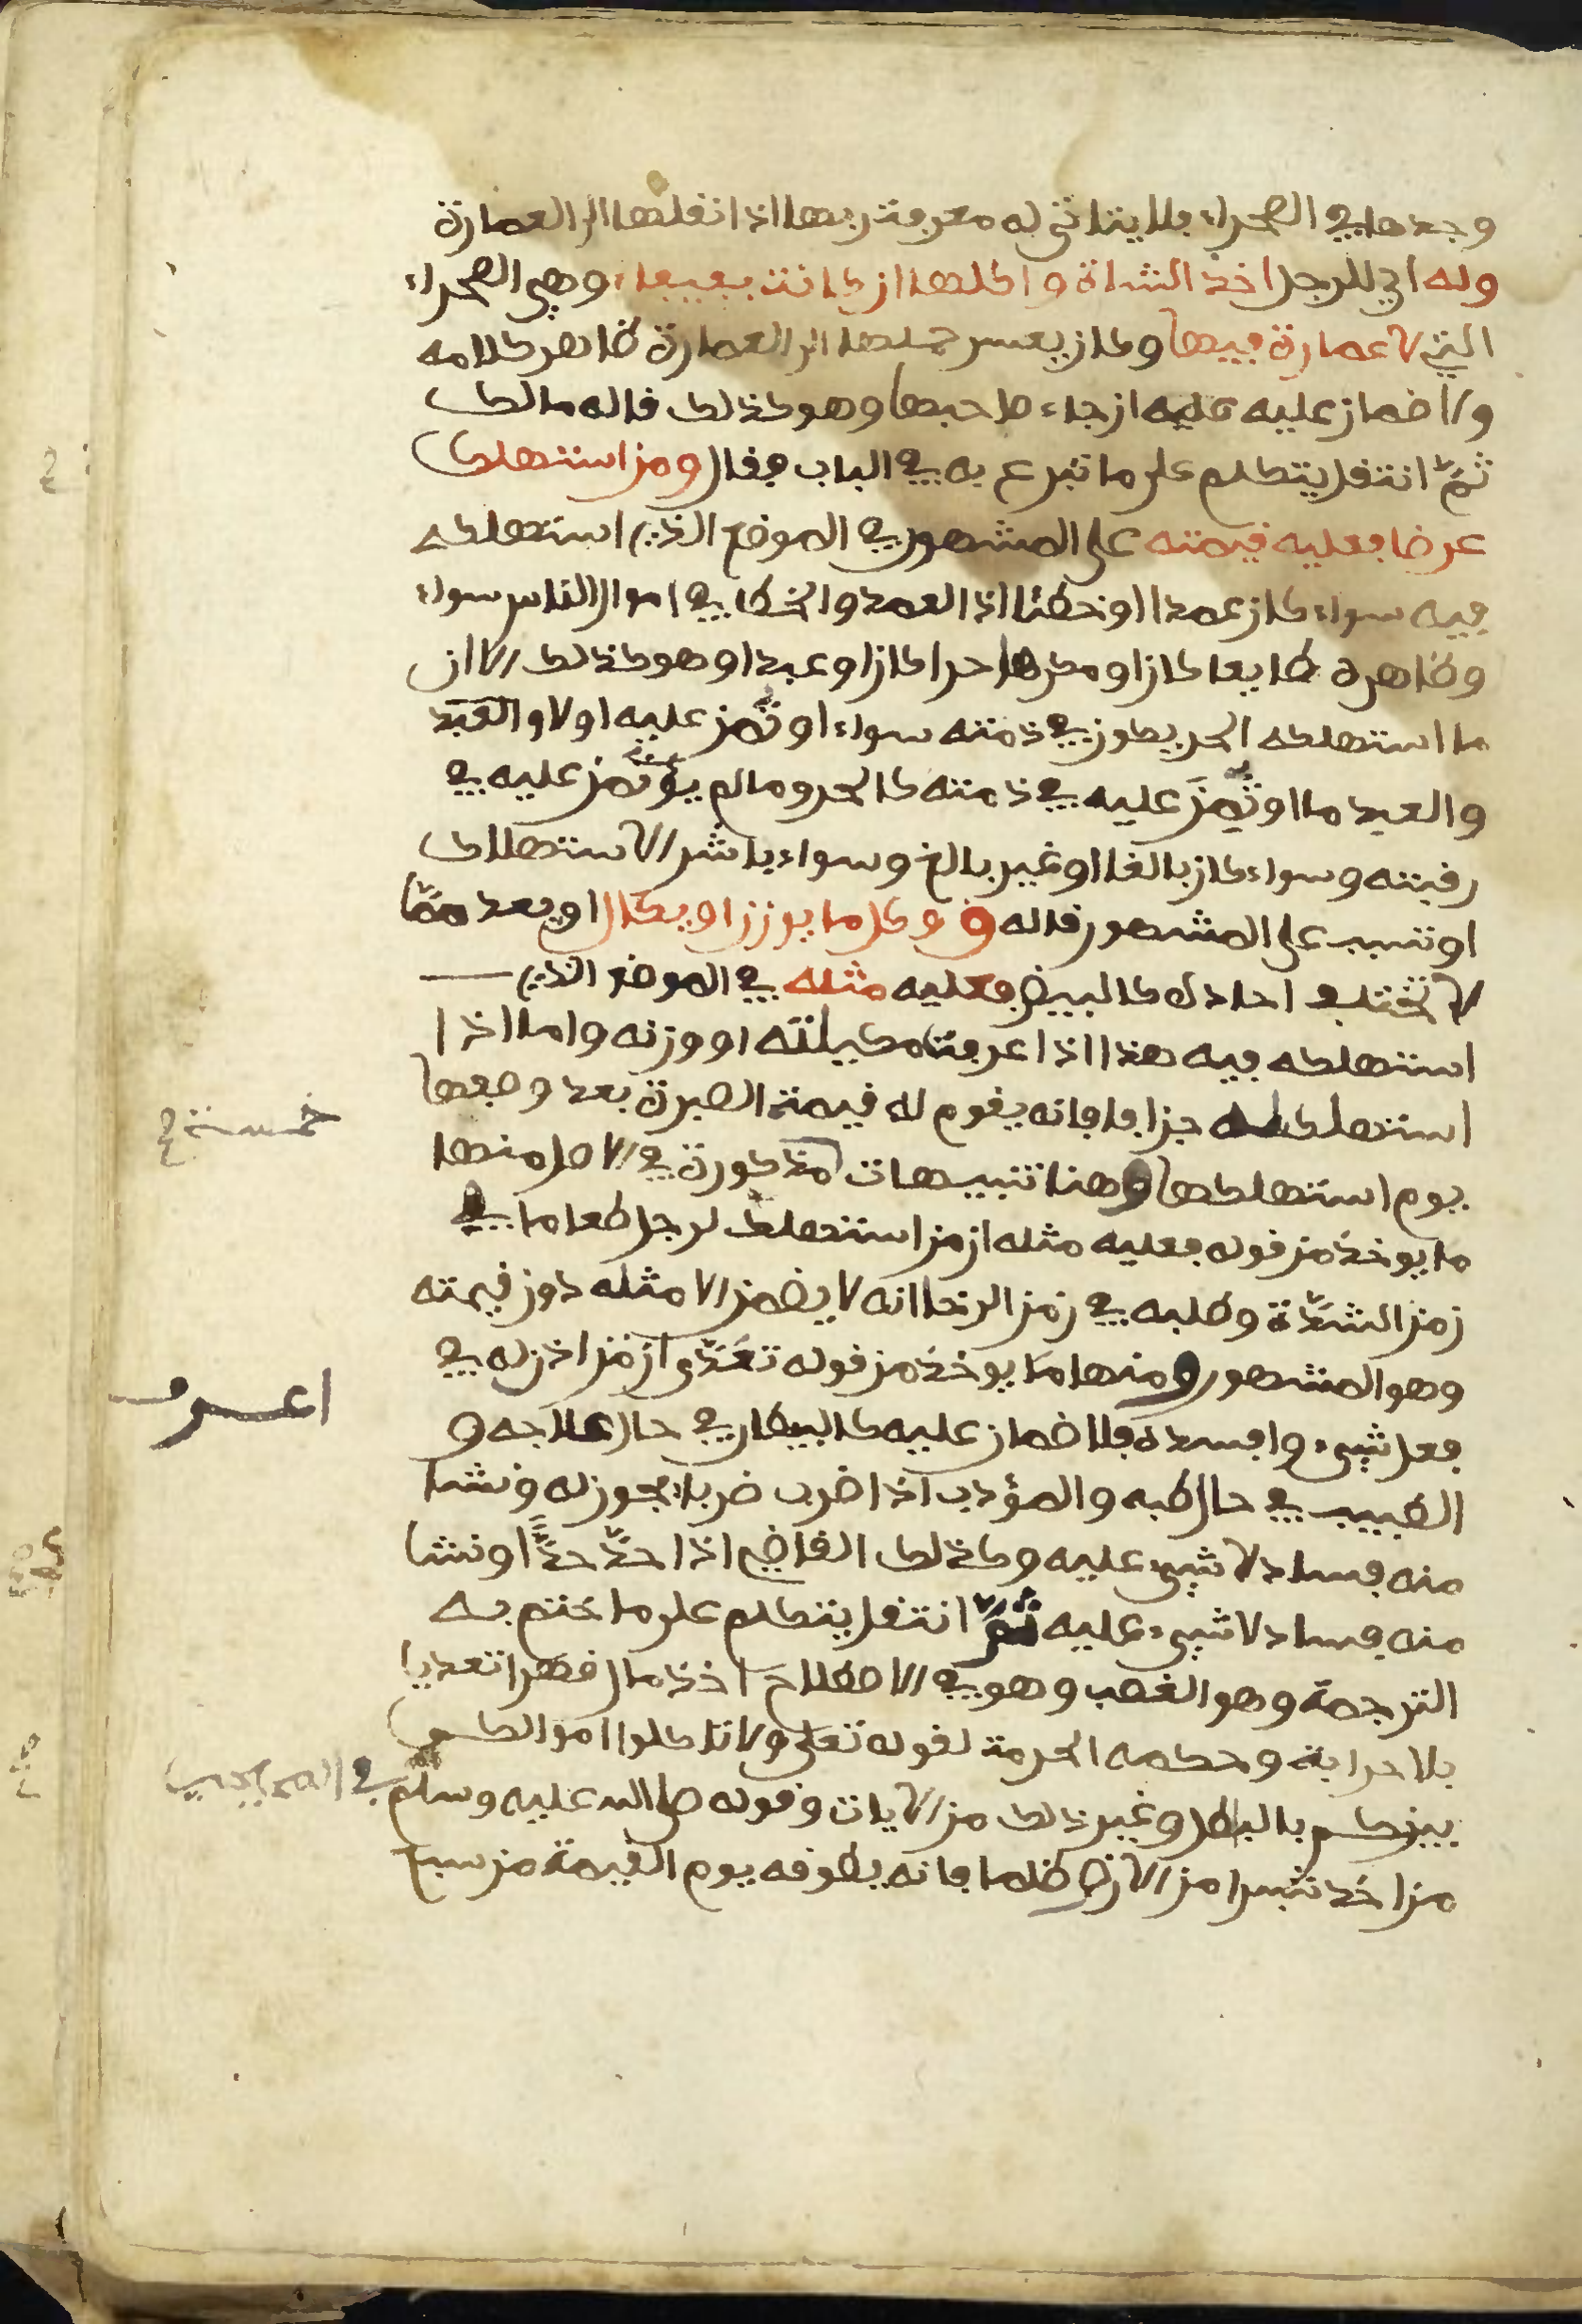 وجدها في الصحراء فلا يتاتى له معرفة ربها اذا نقلها الى العمارة
وله اي للرجل اخذ الشاة واكلها ان كانت بفيفاء وهي الصحراء
التي لا عمارة فيها وكان يعسر حملها الى العمارة ظاهر كلامه
ولا ضمان عليه عليه ان جاء صاحبها وهو كذلك قاله مالك
ثمّ انتقل يتكلم على ما تبرع به في الباب فقال ومن استهلك
عرضا فعليه قيمته على المشهور في الموضع الذي استهلكه
فيه سواء كان عمدا او خطئا اذ العمد والخطا في اموال الناس سواء
وظاهره طايعا كان او مكرها حرا كان او عبدا وهو كذلك الا ان
ما استهلكه الحر يكون في ذمته سواء اوتمن عليه او لا والعبد
والعبد ما اوتمن عليه في ذمته كالحر وما لم يؤتمن عليه في
رقبته وسواء كان بالغا او غير بالغ وسواء باشر الاستهلاك
او تسبب على المشهور قاله ق وكل ما يوزن او يكال او يعد ممّا
لا تختلف احاده كالبيض فعليه مثله في الموضع الذي
استهلكه فيه هذا اذا عرفت مكيلته او وزنه واما اذا
استهلكه جزافا فانه يقوم له قيمة الصبرة بعد وصفها
يوم استهلكها وهنا تنبيهات مذكورة في الاصل منها
ما يوخذ من قوله فعليه مثله ان من استهلك لرجل طعاما في
زمن الشدّة وطلبه في زمن الرخا انه لا يضمن الا مثله دون قيمته
وهو المشهور ومنها ما يوخذ من قوله تعدّى ان من اذن له في
فعل شيء وافسده فلا ضمان عليه كالبيطار في حال علاجه و
الطبيب في حال طبه والمؤدب اذا ضرب ضربا يجوز له ونشا
منه فساد لا شيء عليه وكذلك القاضي اذا حدّ حدّا او نشا
منه فساد لا شيء عليه ثمّ انتقل يتكلم على ما ختم به
الترجمة وهو الغصب وهو في الاصطلاح اخذ مال قهرا تعديا
بلا حرابة وحكمه الحرمة لقوله تعلى ولا تاكلوا اموالكم
بينكم بالبطل وغير ذلك من الايات وقوله صلى الله عليه وسلم في الصحيحين
من اخذ شبرا من الارض ظلما فانه يطوقه يوم القيمة من سبع
خمسة
اعرف